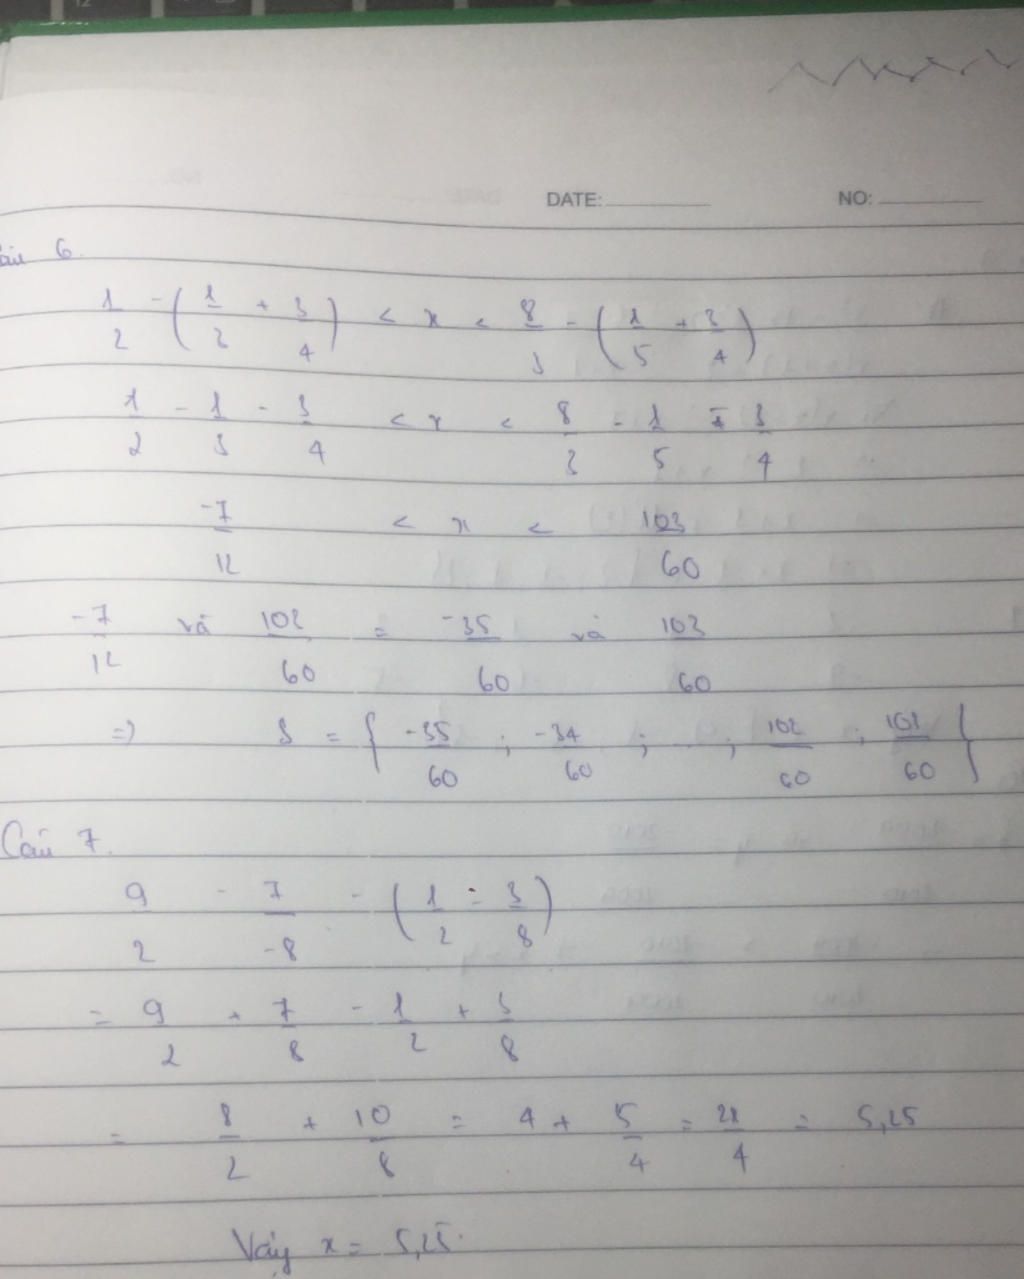 DATE: NO:
Câu 6.
1/2 - (1/3 + 3/4) < x < 8/3 - (1/5 + 3/4)
1/2 - 1/3 - 3/4 < x < 8/3 - 1/5 - 3/4
-7/12 < x < 103/60
-7/12 và 103/60 = -35/60 và 103/60
=> S = { -35/60 ; -34/60 ; ... ; 102/60 ; 103/60 }
Câu 7.
9/2 - 7/-8 - (1/2 - 3/8)
= 9/2 + 7/8 - 1/2 + 3/8
= 8/2 + 10/8 = 4 + 5/4 = 21/4 = 5,25
Vậy x = 5,25.